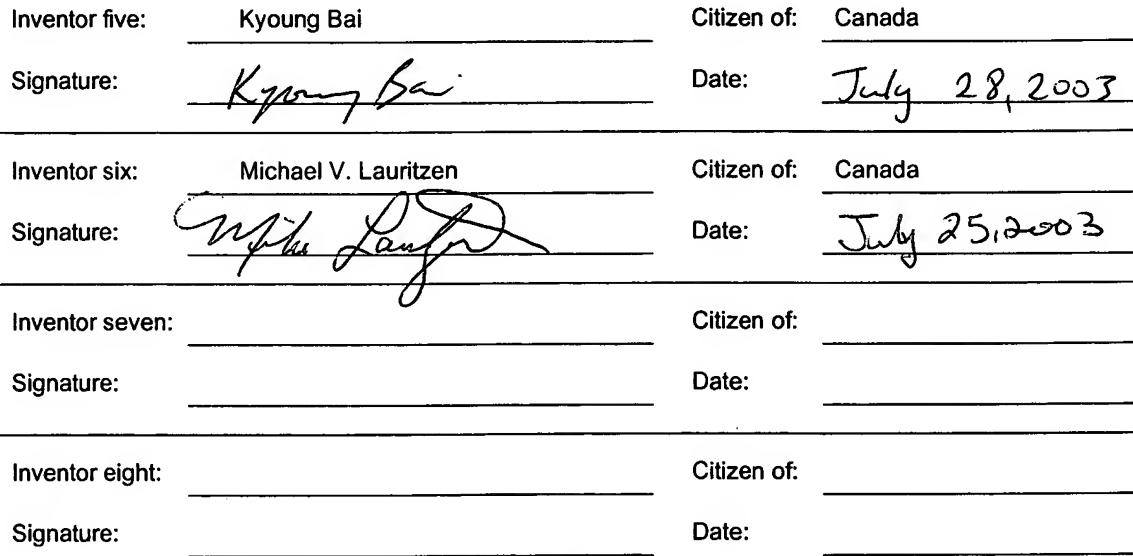 Inventor five: Kyoung Bai Citizen of: Canada
Signature: Kyoung Bai Date: July 28, 2003
Inventor six: Michael V. Lauritzen Citizen of: Canada
Signature: Mike Date: July 25, 2003
Inventor seven: Citizen of:
Signature: Date:
Inventor eight: Citizen of:
Signature: Date: